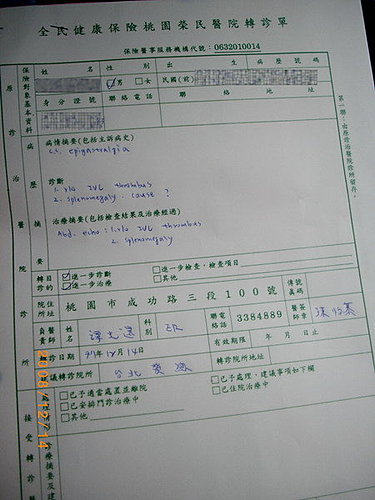 全民健康保險桃園榮民醫院轉診單
保險醫事服務機構代號：0632010014
保險對象基本資料
姓名 性別 出生 病歷號碼
☑男 □女 民國(前)
身分證號 聯絡電話 聯絡地址
第一聯：由原診治醫院診所留存。
原診治醫院診所
病歷摘要
病情摘要(包括主訴病史)
c.c. epigastralgia
診斷
1. r/o IVC thrombus
2. splenomegaly. cause ?
治療摘要(包括檢查結果及治療經過)
Abd. echo : 1. r/o IVC thrombus
2. splenomegaly
轉診目的
☑進一步診斷 □進一步檢查，檢查項目
☑進一步治療 □其他
院所住址 桃園市成功路三段100號 傳號真碼
負責醫師 姓名 科別 ER 聯絡電話 3384889 醫師簽章
轉診日期 97年12月14日 有效期限 年 月 日止
建議轉診院所 台北榮總 轉診院所地址
□已予適當處置並離院 □已予處理，建議事項如下欄
□已安排門診治療中 □已住院治療中
□其他
接受轉診
2008/12/14